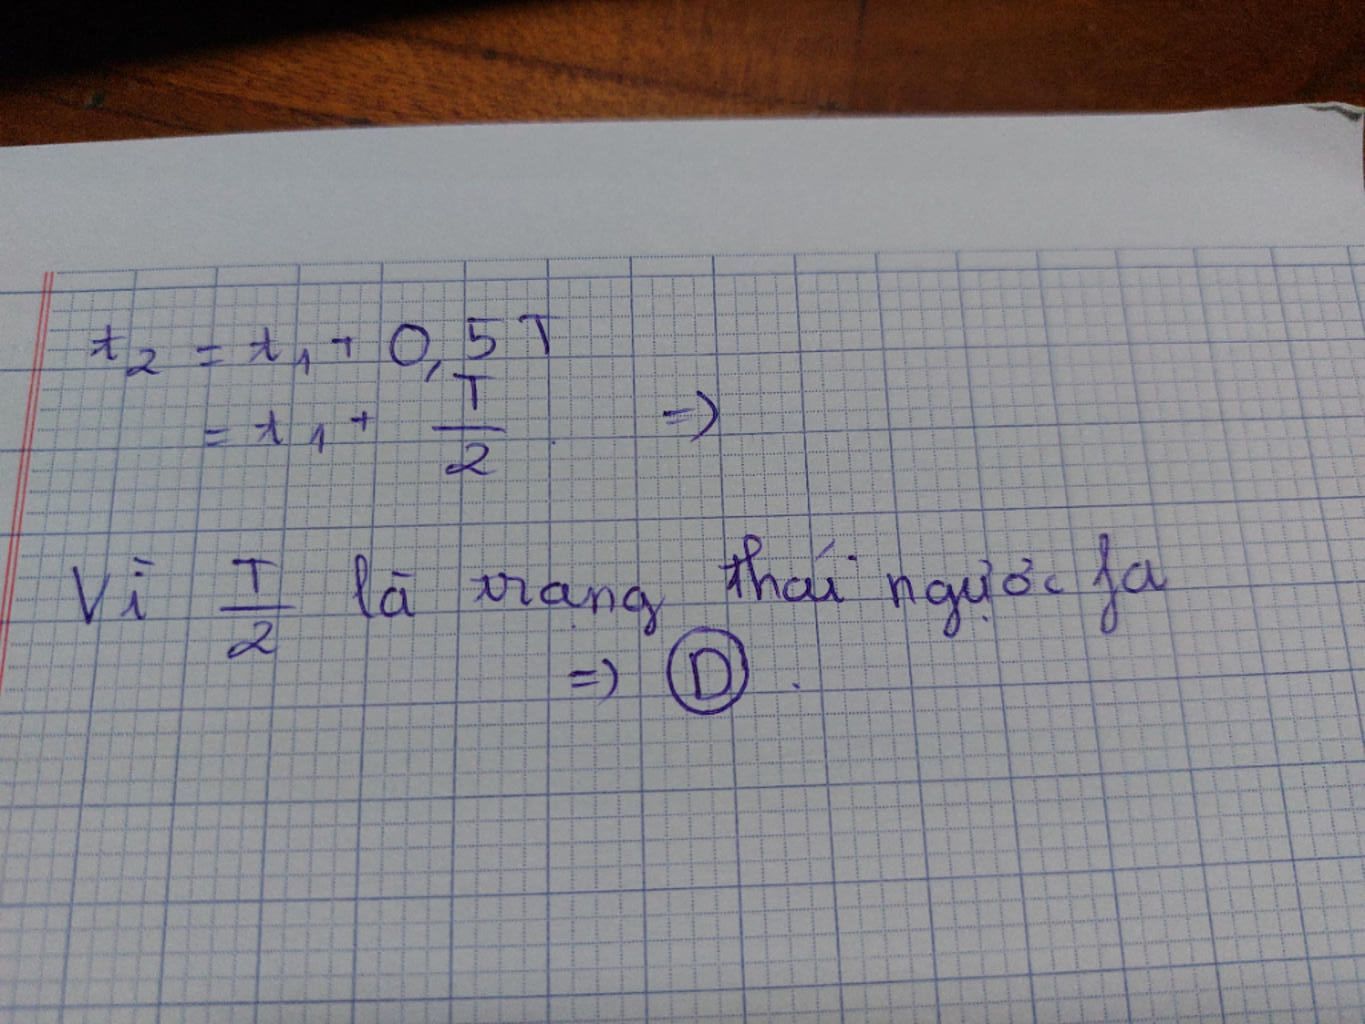 t₂ = t₁ + 0,5T
= t₁ + T/2 =>
Vì T/2 là trạng thái ngược fa
=> D.